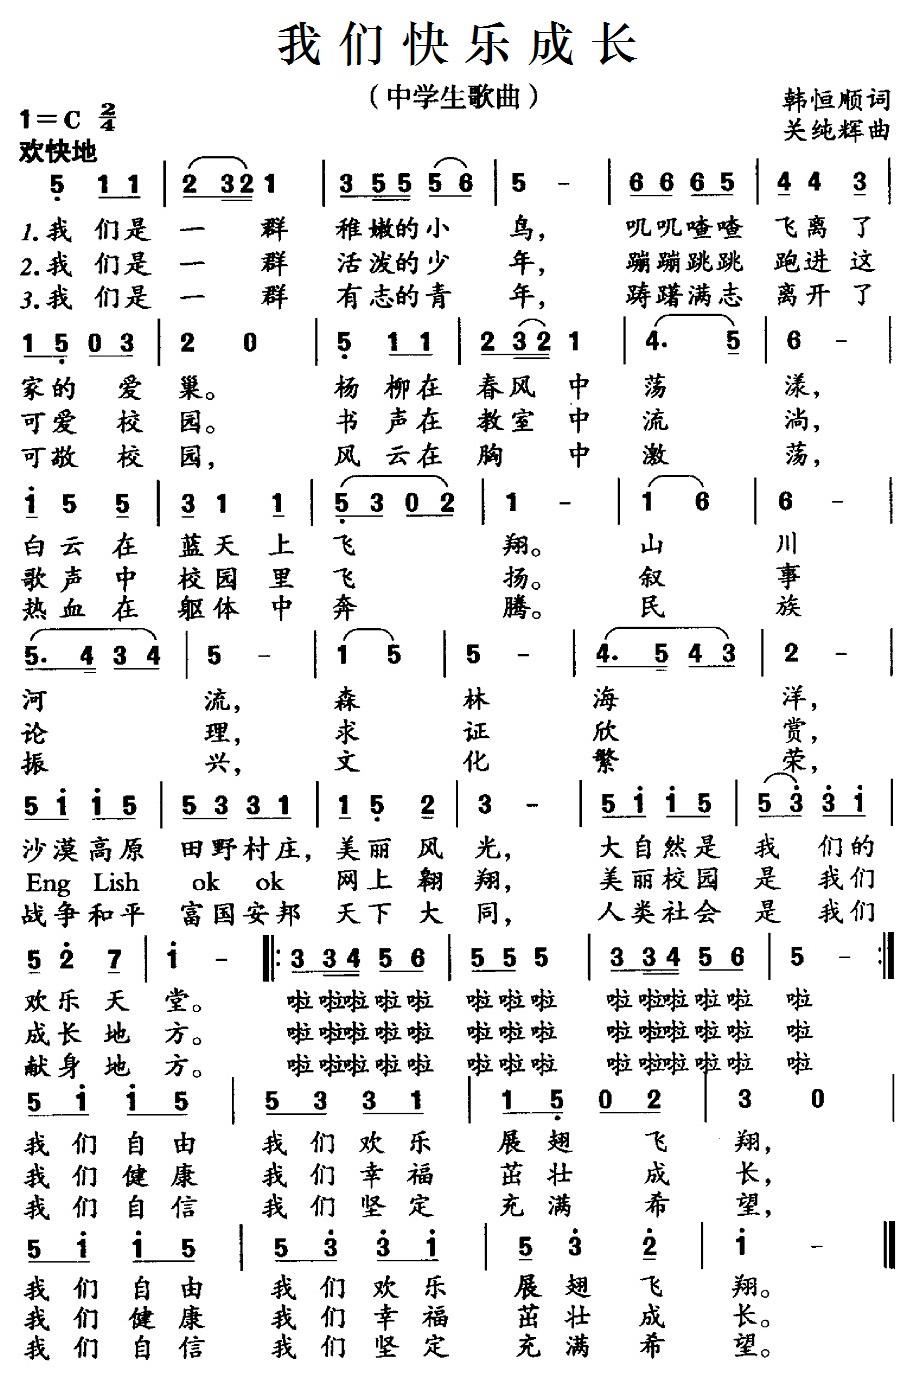 我们快乐成长
（中学生歌曲）
1=C 2/4
韩恒顺词
关纯辉曲
欢快地
5 1 1 | 2 3 2 1 | 3 5 5 5 6 | 5 - | 6 6 6 5 | 4 4 3 |
1.我 们是 一 群 稚嫩的小 鸟， 叽叽喳喳 飞离了
2.我 们是 一 群 活泼的少 年， 蹦蹦跳跳 跑进这
3.我 们是 一 群 有志的青 年， 踌躇满志 离开了
1 5 0 3 | 2 0 | 5 1 1 | 2 3 2 1 | 4. 5 | 6 - |
家的 爱 巢。 杨 柳在 春风 中 荡 漾，
可爱 校 园。 书 声在 教室 中 流 淌，
可敬 校 园， 风 云在 胸 中 激 荡，
1 5 5 | 3 1 1 | 5 3 0 2 | 1 - | 1 6 | 6 - |
白云在 蓝天上 飞 翔。 山 川
歌声中 校园里 飞 扬。 叙 事
热血在 躯体中 奔 腾。 民 族
5. 4 3 4 | 5 - | 1 5 | 5 - | 4. 5 4 3 | 2 - |
河 流， 森 林 海 洋，
论 理， 求 证 欣 赏，
振 兴， 文 化 繁 荣，
5 1 1 5 | 5 3 3 1 | 1 5 2 | 3 - | 5 1 1 5 | 5 3 3 1 |
沙漠高原 田野村庄， 美丽风 光， 大自然是 我 们的
Eng Lish ok ok 网上翱 翔， 美丽校园 是 我们
战争和平 富国安邦 天下大 同， 人类社会 是 我们
5 2 7 | 1 - |: 3 3 4 5 6 | 5 5 5 5 | 3 3 4 5 6 | 5 - :|
欢乐天 堂。 啦啦啦啦啦 啦啦啦 啦啦啦啦啦 啦
成长地 方。 啦啦啦啦啦 啦啦啦 啦啦啦啦啦 啦
献身地 方。 啦啦啦啦啦 啦啦啦 啦啦啦啦啦 啦
5 1 1 5 | 5 3 3 1 | 1 5 0 2 | 3 0 |
我们自由 我们欢乐 展翅 飞 翔，
我们健康 我们幸福 茁壮 成 长，
我们自信 我们坚定 充满 希 望，
5 1 1 5 | 5 3 3 1 | 5 3 2 | 1 - ||
我们自由 我们欢乐 展翅 飞 翔。
我们健康 我们幸福 茁壮 成 长。
我们自信 我们坚定 充满 希 望。